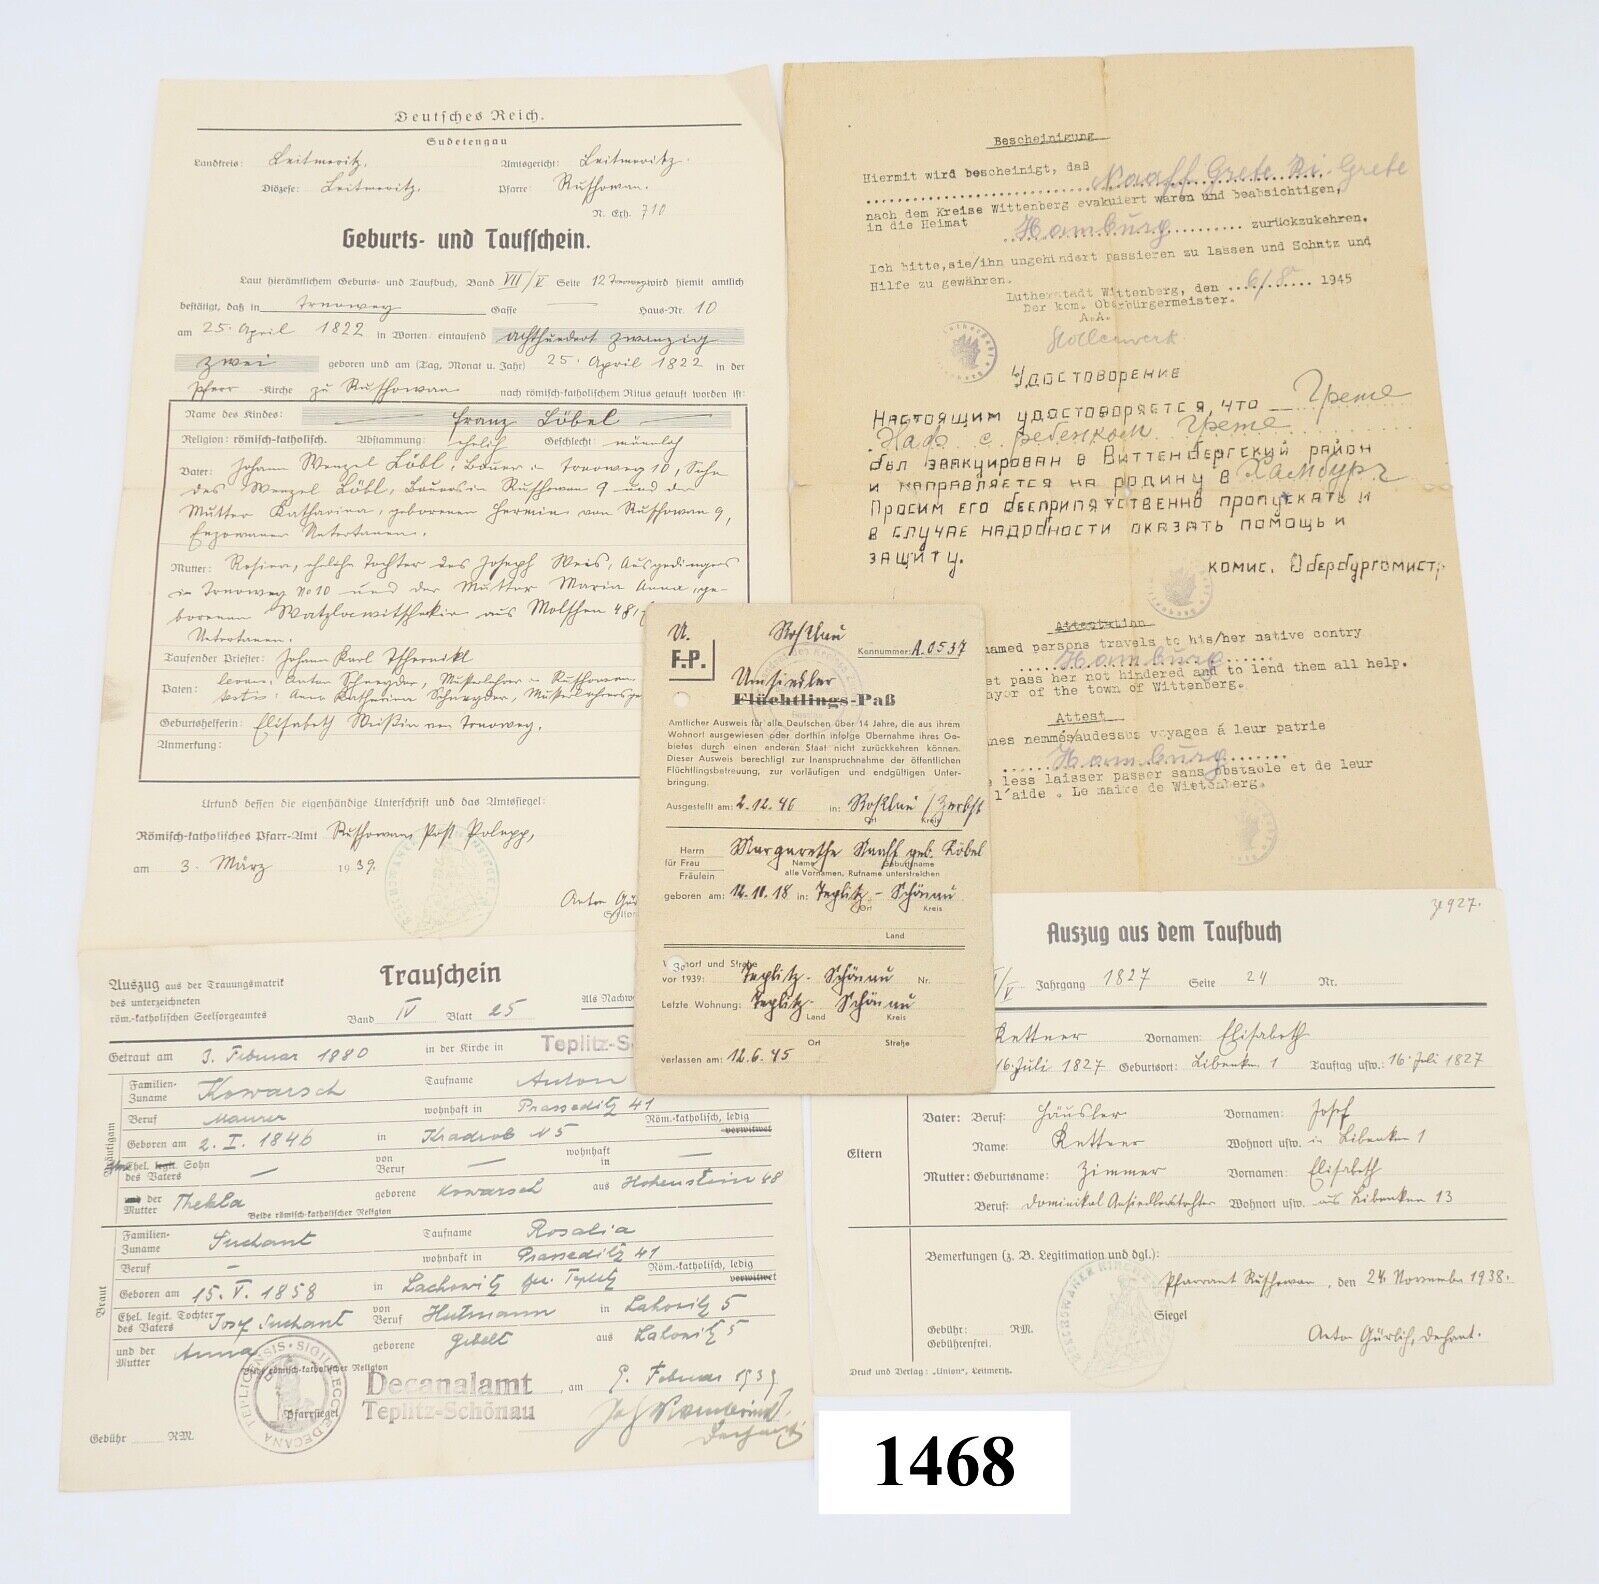 Deutsches Reich.
Sudetengau
Landkreis: Leitmeritz. Amtsgericht: Leitmeritz.
Diözese: Leitmeritz. Pfarre: Ruschowan.
N. Exh. 710
Geburts- und Taufschein.
Laut hierämtlichem Geburts- und Taufbuch, Band VII/V Seite 12 Trnoweg wird hiemit amtlich
bestätigt, daß in Trnoweg Gasse — Haus-Nr. 10
am 25. April 1822 in Worten: eintausend achthundert zwanzig
zwei geboren und am (Tag, Monat u. Jahr) 25. April 1822 in der
Pfarr-Kirche zu Ruschowan nach römisch-katholischem Ritus getauft worden ist:
Name des Kindes: Franz Löbel
Religion: römisch-katholisch. Abstammung: ehelich Geschlecht: männlich
Vater: Johann Wenzel Löbl, Bauer in Trnoweg 10, Sohn
des Wenzel Löbl, Bauers in Ruschowan 9 und der
Mutter Katharina, geborenen Hermin von Ruschowan 9,
Untertanen.
Mutter: Rosina, eheliche Tochter des Joseph Weis, Ausgedingers
in Trnoweg No 10 und der Mutter Maria Anna, ge-
borenen aus Molschen 48,
Untertanen.
Taufender Priester: Johann Karl Tschernikl
Paten: Anton Schneyder, in Ruschowan
Anna Katharina Schneyder,
Geburtshelferin: Elisabeth von Trnoweg.
Anmerkung:
Urkund dessen die eigenhändige Unterschrift und das Amtsiegel:
Römisch-katholisches Pfarr-Amt Ruschowan, Post Polepp,
am 3. März 1939.
Anton
Bescheinigung
Hiermit wird bescheinigt, daß Naaff Grete Ki. Grete
nach dem Kreise Wittenberg evakuiert waren und beabsichtigen,
in die Heimat Hamburg zurückzukehren.
Ich bitte, sie/ihn ungehindert passieren zu lassen und Schutz und
Hilfe zu gewähren.
Lutherstadt Wittenberg, den 6/8 1945
Der kom. Oberbürgermeister.
A.A.
Удостоворение
Настоящим удостоворяется, что Грете
Наф с ребенком Грете
был эвакуирован в Виттенбергский район
и направляется на родину в Хамбург
Просим его бесприпятственно пропускать и
в случае надобности оказать помощь и
защиту.
комис. Обербургомистр
Attestation
named persons travels to his/her native contry
Hamburg
et pass her not hindered and to lend them all help.
ayor of the town of Wittenberg.
Attest
nes nemmés audessus voyages á leur patrie
Hamburg
e less laisser passer sans obstacle et de leur
l'aide . Le maire de Wittenberg.
U. Roßlau
F.P. Kennummer: A.0537
Umsiedler
Flüchtlings-Paß
Amtlicher Ausweis für alle Deutschen über 14 Jahre, die aus ihrem
Wohnort ausgewiesen oder dorthin infolge Übernahme ihres Ge-
bietes durch einen anderen Staat nicht zurückkehren können.
Dieser Ausweis berechtigt zur Inanspruchnahme der öffentlichen
Flüchtlingsbetreuung, zur vorläufigen und endgültigen Unter-
bringung.
Ausgestellt am: 2.12.46 in: Roßlau / Zerbst
Ort Kreis
Herrn
für Frau Margarethe Naaff geb. Löbel
Fräulein
Name Geburtsname
alle Vornamen, Rufname unterstreichen
geboren am: 12.11.18 in: Teplitz-Schönau
Ort Kreis
Land
Wohnort und Straße
vor 1939: Teplitz-Schönau Nr.
Letzte Wohnung: Teplitz-Schönau
Land Kreis
Ort Straße
verlassen am: 12.6.45
Trauschein
Auszug aus der Trauungsmatrik
des unterzeichneten
röm.-katholischen Seelsorgeamtes
Band IV Blatt 25
Als Nachw
Getraut am 3. Februar 1880 in der Kirche in Teplitz-S
Bräutigam
Familien-Zuname Kowarsch Taufname Anton
Beruf Maurer wohnhaft in Prasseditz 41
Röm.-katholisch, ledig
verwitwet
Geboren am 2. I. 1846 in Kradrob N 5
Ehel. legit. Sohn des Vaters — von Beruf — wohnhaft in —
und der Mutter Thekla geborene Kowarsch aus Hohenstein 48
Beide römisch-katholischer Religion
Braut
Familien-Zuname Suchant Taufname Rosalia
Beruf — wohnhaft in Prasseditz 41
Röm.-katholisch, ledig
verwitwet
Geboren am 15. V. 1858 in Lachowitz Teplitz
Ehel. legit. Tochter des Vaters Josef Suchant von Beruf Hutmann in Lahowitz 5
und der Mutter Anna geborene Gebelt aus Lahowitz 5
Beide römisch-katholischer Religion
Decanalamt
Teplitz-Schönau
, am 9. Februar 1939
Pfarrsiegel
Gebühr RM.
Zl 927.
Auszug aus dem Taufbuch
/V Jahrgang 1827 Seite 24 Nr.
Kettner Vornamen: Elisabeth
16. Juli 1827 Geburtsort: Libenken 1 Tauftag usw.: 16. Juli 1827
Eltern
Vater: Beruf: Häusler Vornamen: Josef
Name: Kettner Wohnort usw. in Libenken 1
Mutter: Geburtsname: Zimmer Vornamen: Elisabeth
Beruf: Dominikal Ansiedlerstochter Wohnort usw. aus Libenken 13
Bemerkungen (z. B. Legitimation und dgl.):
Pfarramt Ruschowan, den 24. November 1938.
Siegel
Gebühr: RM.
Gebührenfrei.
Anton Gürlich, Dechant.
Druck und Verlag: „Union", Leitmeritz.
1468